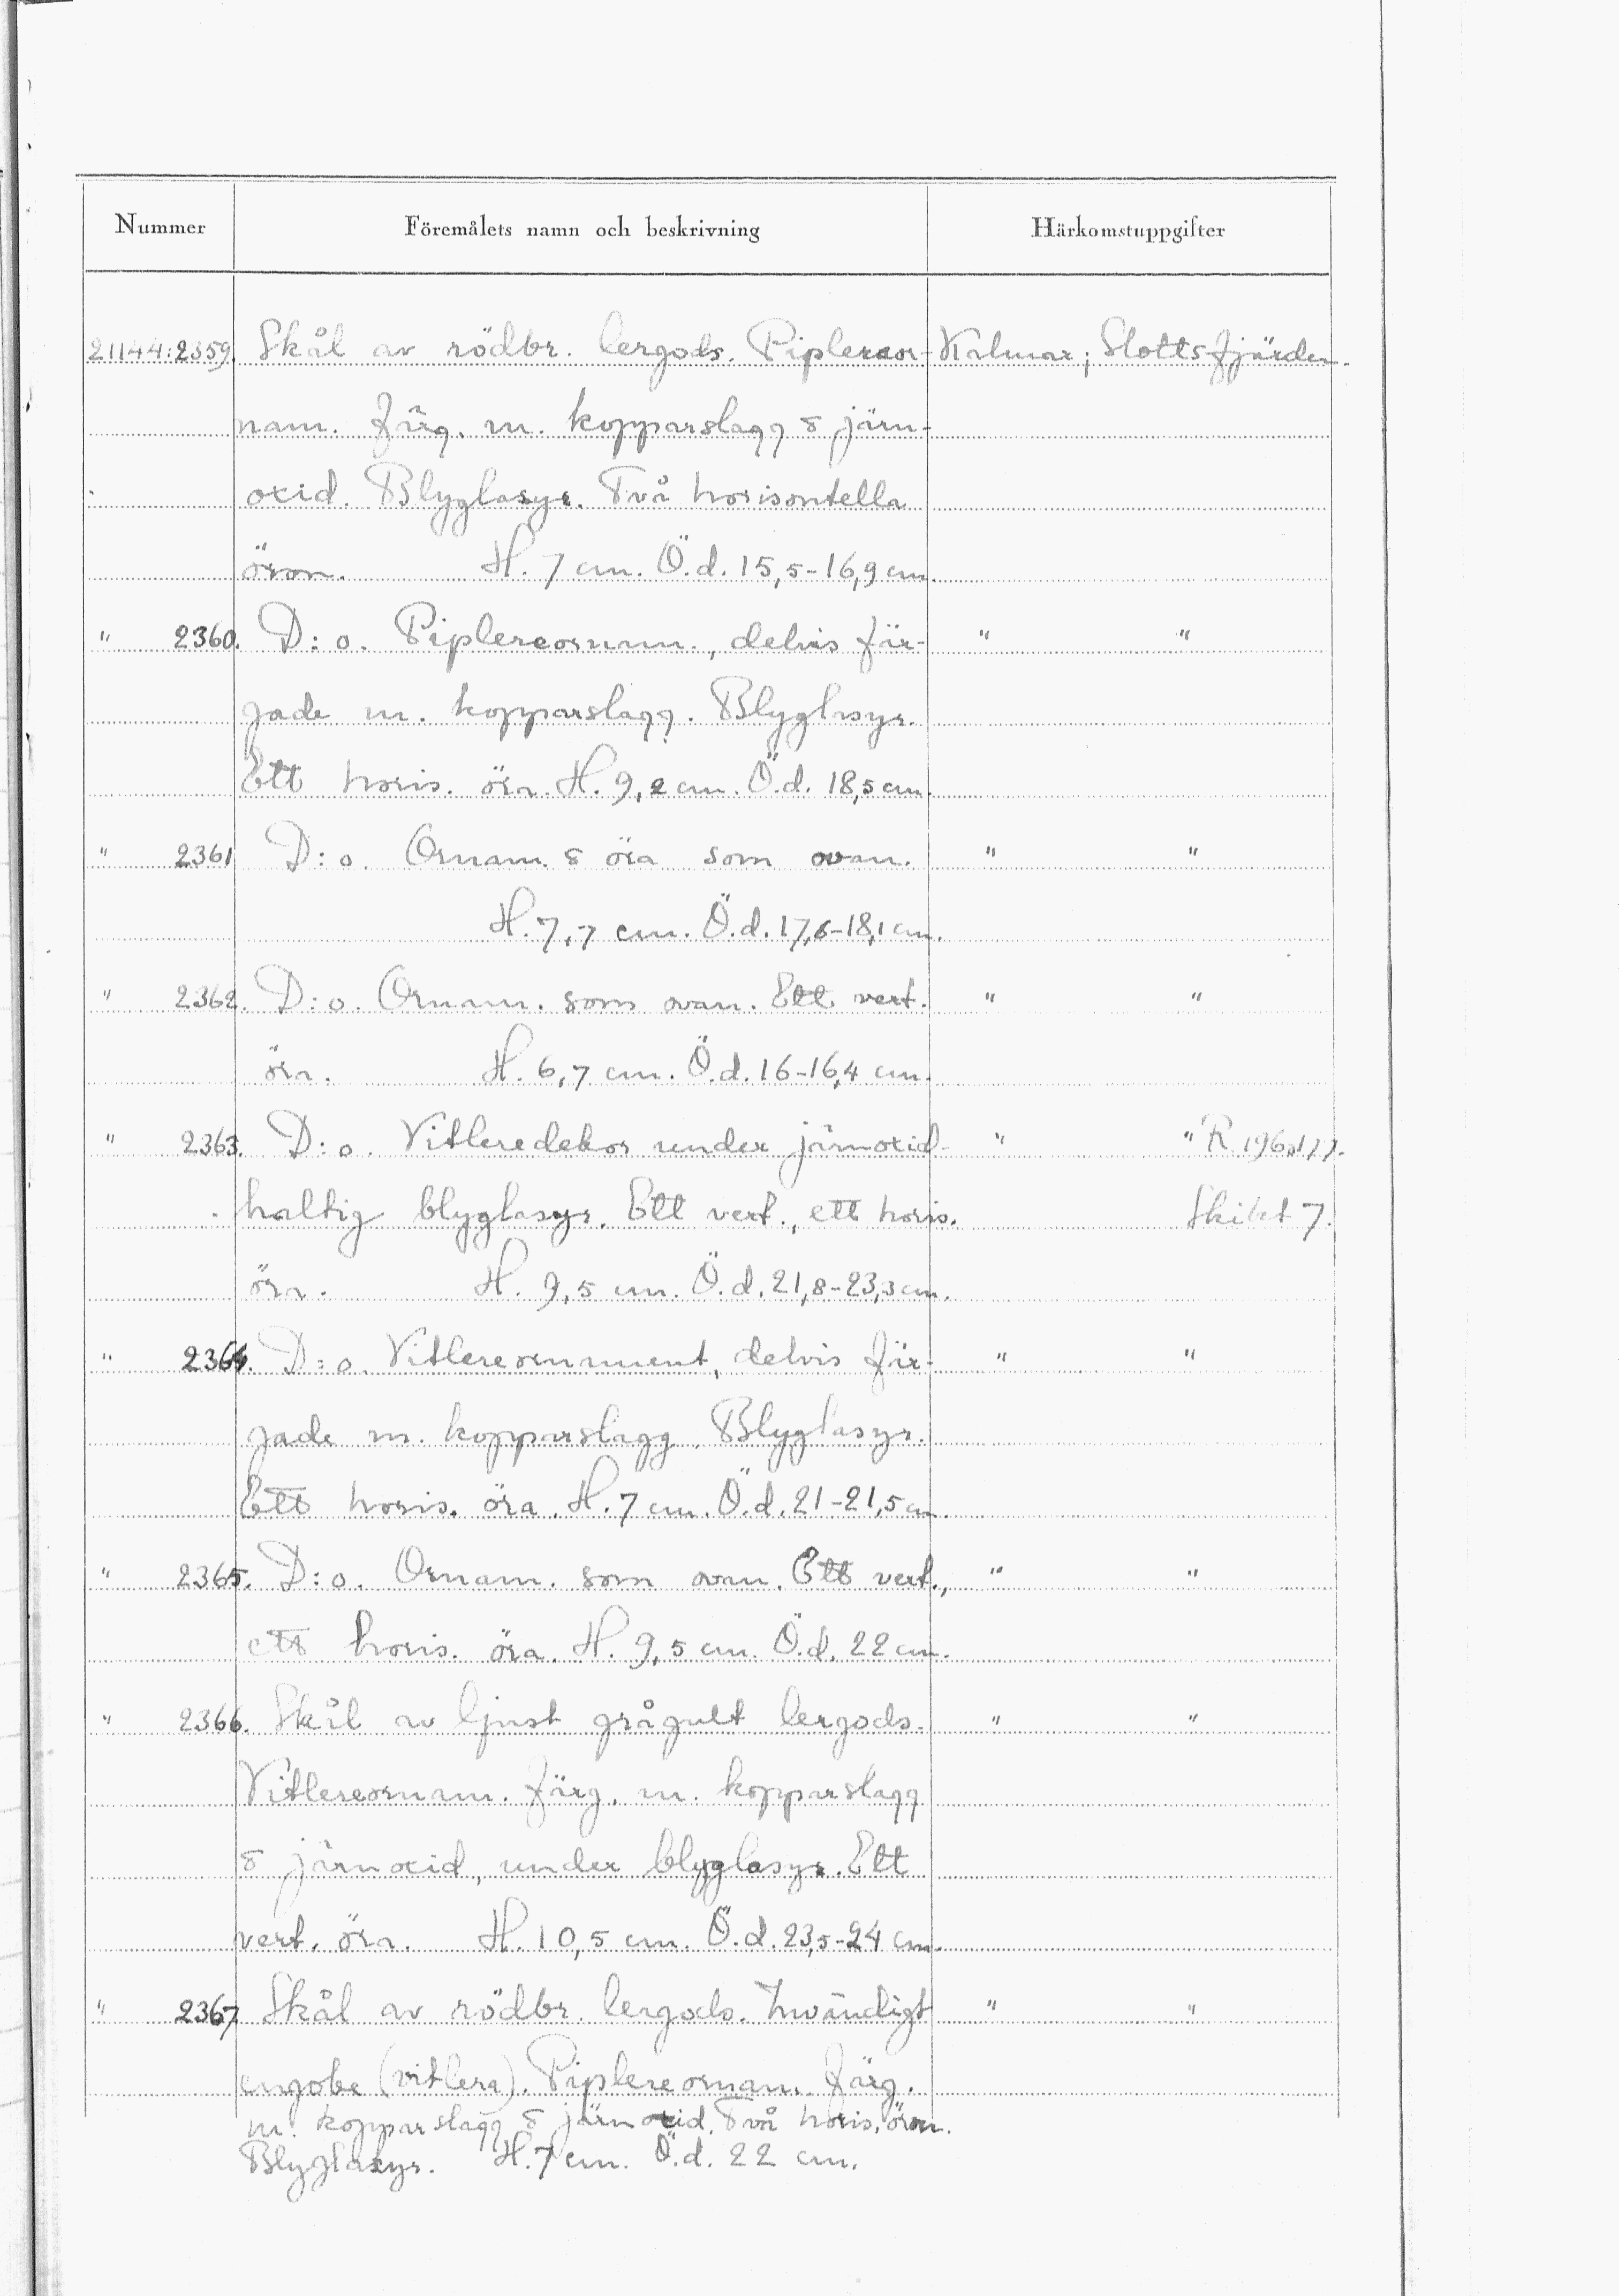 Nummer Föremålets namn och beskrivning Härkomstuppgifter
21144:2359. Skål av rödbr. lergods. Piplereor- Kalmar; Slottsfjärden.
nam. Färg. m. kopparslagg & järn-
oxid. Blyglasyr. Två horisontella
öron. H. 7 cm. Ö.d. 15,5-16,9 cm.
" 2360. D:o. Piplereornam., delvis fär- " "
gade m. kopparslagg. Blyglasyr.
Ett horis. öra. H. 9,2 cm. Ö.d. 18,5 cm.
" 2361 D:o. Ornam. & öra som ovan. " "
H. 7,7 cm. Ö.d. 17,6-18,1 cm.
" 2362. D:o. Ornam. som ovan. Ett vert. " "
öra. H. 6,7 cm. Ö.d. 16-16,4 cm.
" 2363. D:o. Vitleredekor under järnoxid- " " R
haltig blyglasyr. Ett vert., ett horis. Skikt 7.
öra. H. 9,5 cm. Ö.d. 21,8-23,3 cm.
" 2364. D:o. Vitlereornament, delvis fär- " "
gade m. kopparslagg. Blyglasyr.
Ett horis. öra. H. 7 cm. Ö.d. 21-21,5 cm.
" 2365. D:o. Ornam. som ovan. Ett vert., " "
ett horis. öra. H. 9,5 cm. Ö.d. 22 cm.
" 2366. Skål av ljust grågult lergods. " "
Vitlereornam. Färg. m. kopparslagg
& järnoxid, under blyglasyr. Ett
vert. öra. H. 10,5 cm. Ö.d. 23,5-24 cm.
" 2367 Skål av rödbr. lergods. Invändigt " "
engobe (vitlera). Piplereornam. Färg.
m. kopparslagg & järnoxid. Två horis. öron.
Blyglasyr. H. 7 cm. Ö.d. 22 cm.